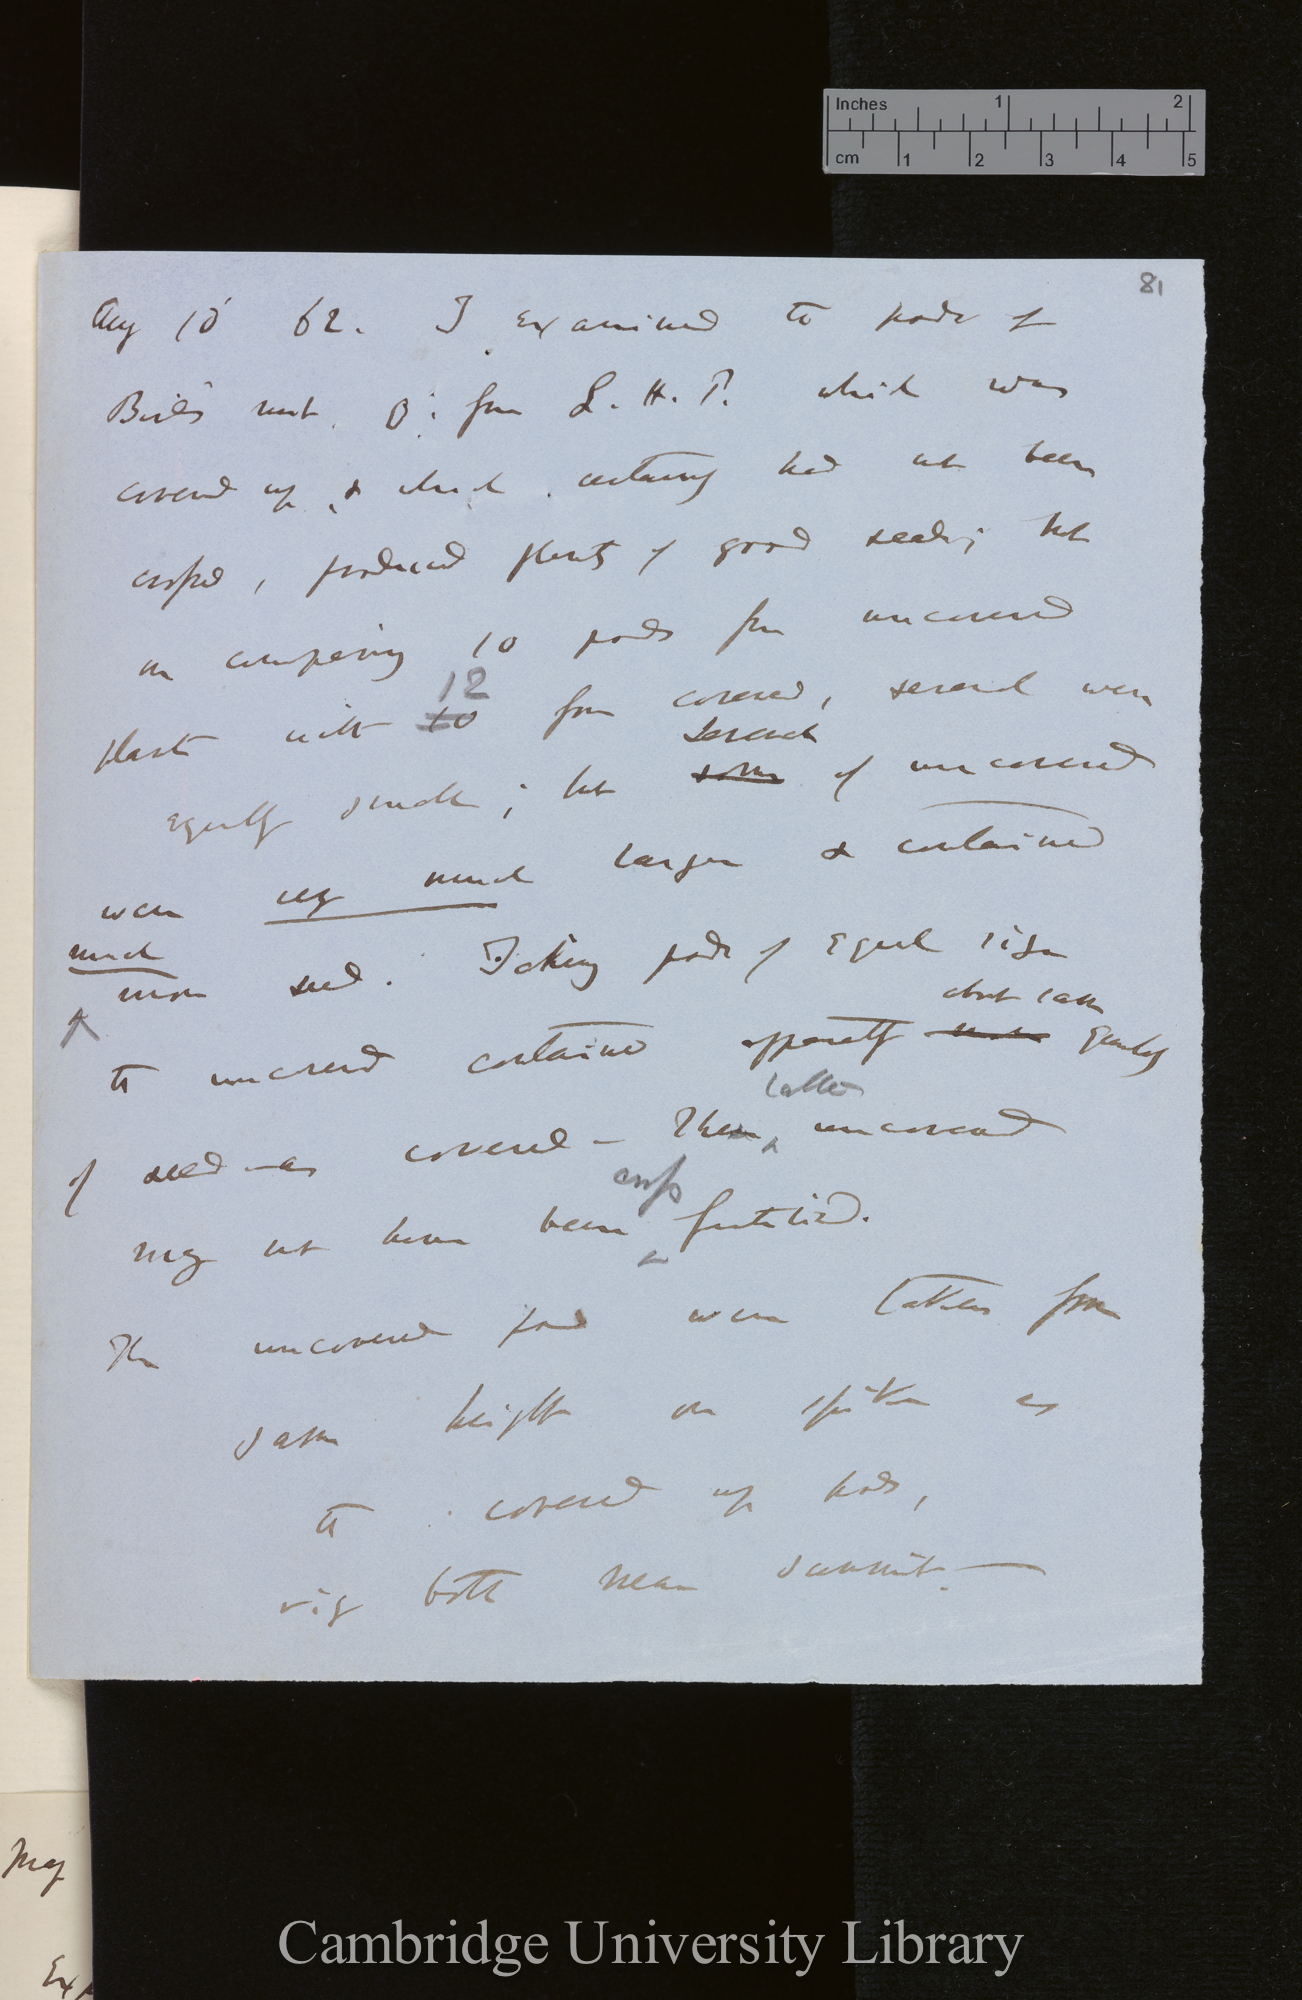 Inches 1 2
cm 1 2 3 4 5
81
Aug 10 62. I examined the pods of
Bird's nest O. from which was
covered up & which certainly had not been
crossed, produced plenty of good seeds; but
on comparing 10 pods from uncovered
12
plants with 10 from covered, several were
several
equally small; but some of uncovered
were very much larger & contained
much
more seed. Taking pods of equal size
about same
the uncovered contained apparently quantity
of seed as covered — These uncovered
latter
cross
may not have been fertilised.
The uncovered pods were taken from
same height on spike as
the covered up pods,
viz both near summit. —
May
Ex
Cambridge University Library